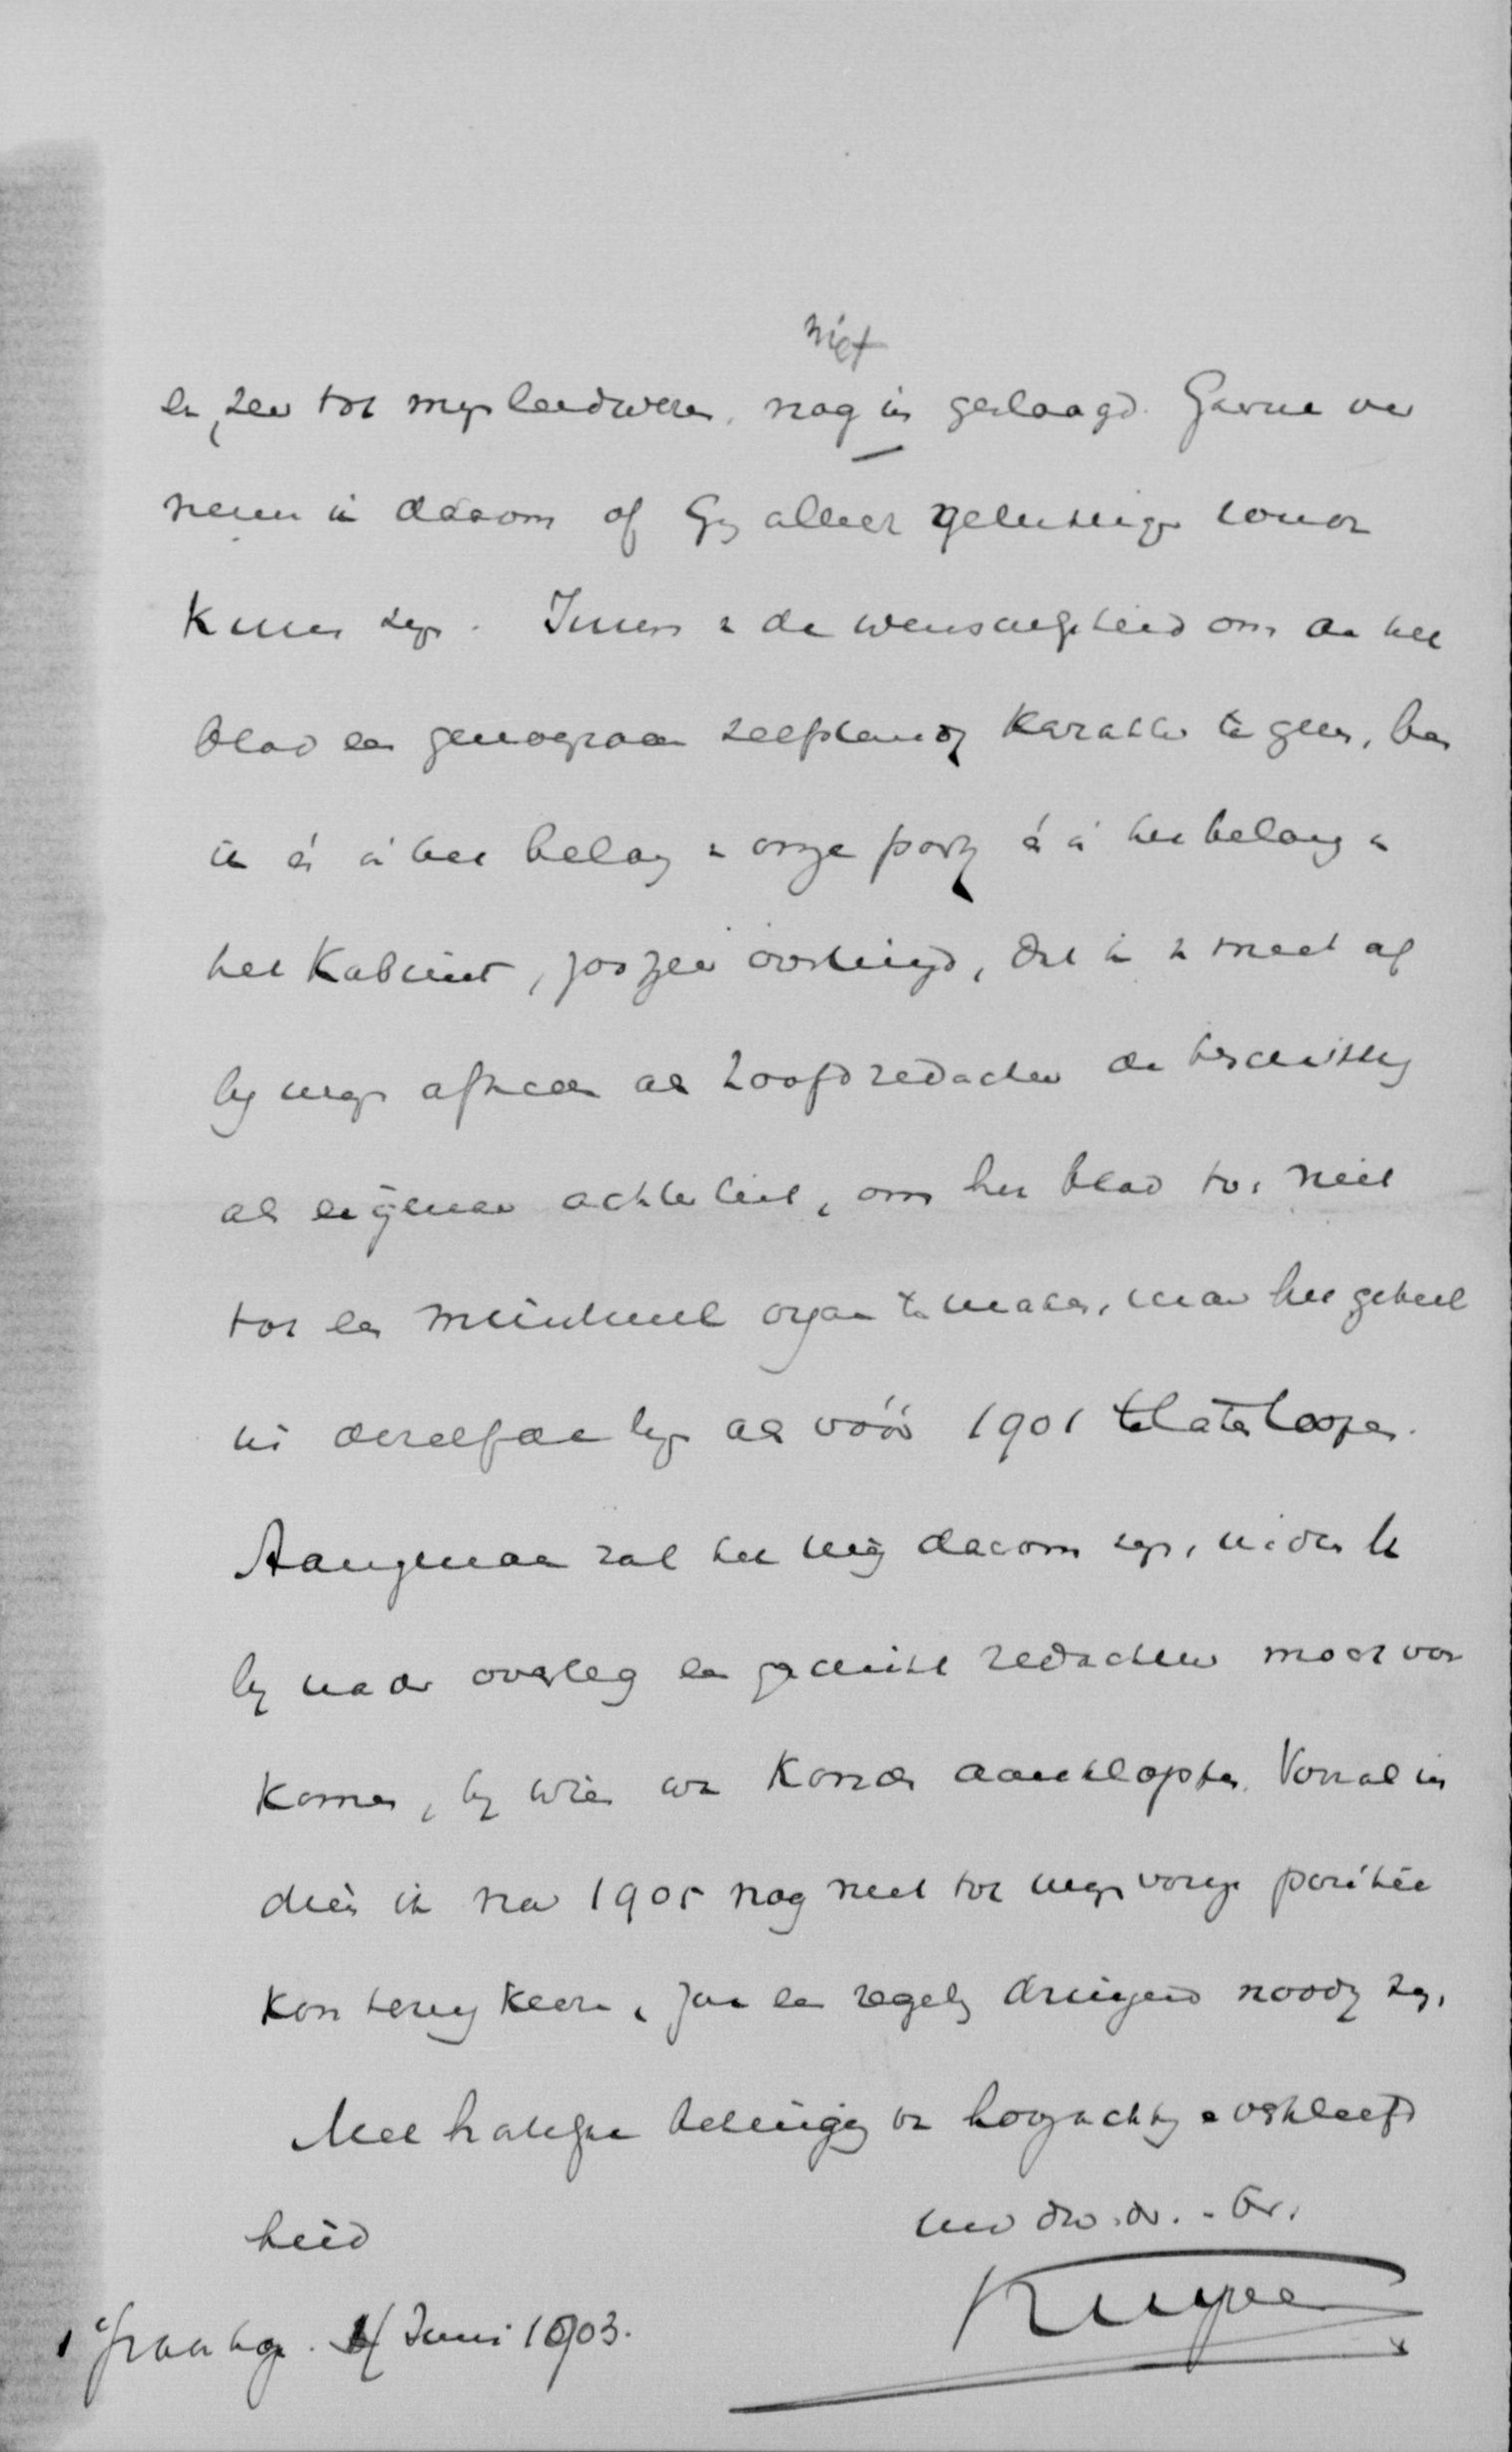 niet
en, zeer tot mijn leedwezen, nog in geslaagd. Gaarne ver
neem ik daarom of Gij alleen gelukkiger
kunnen zijn. Immers de wenschelijkheid om aan het
blad een genoegzaam zelfstandig karakter te geven, ben
ik én in het belang van onze partij én in het belang van
het Kabinet, zoozeer overtuigd, dat ik
bij mijn aftreden als hoofdredacteur de beschikking
als eigenaar achterliet, om het blad toch niet
tot een ministrieel orgaan te maken, maar het geheel
in dezelfde lijn als vóór 1901 te laten loopen.
Aangenaam zal het mij daarom zijn, indien U
bij nader overleg een geschikt redacteur mocht voor
komen, bij wien we konden aankloppen. Vooral in
dien ik na 1905 nog niet tot mijn vorige positie
kon terugkeeren, zou een regeling dringend noodig zijn.
Met hartelijke betuiging van hoogachting en verkleefd
heid
Uw dw. dr. en br.
Kuyper
's Gravenhage. 4 Juni 1903.